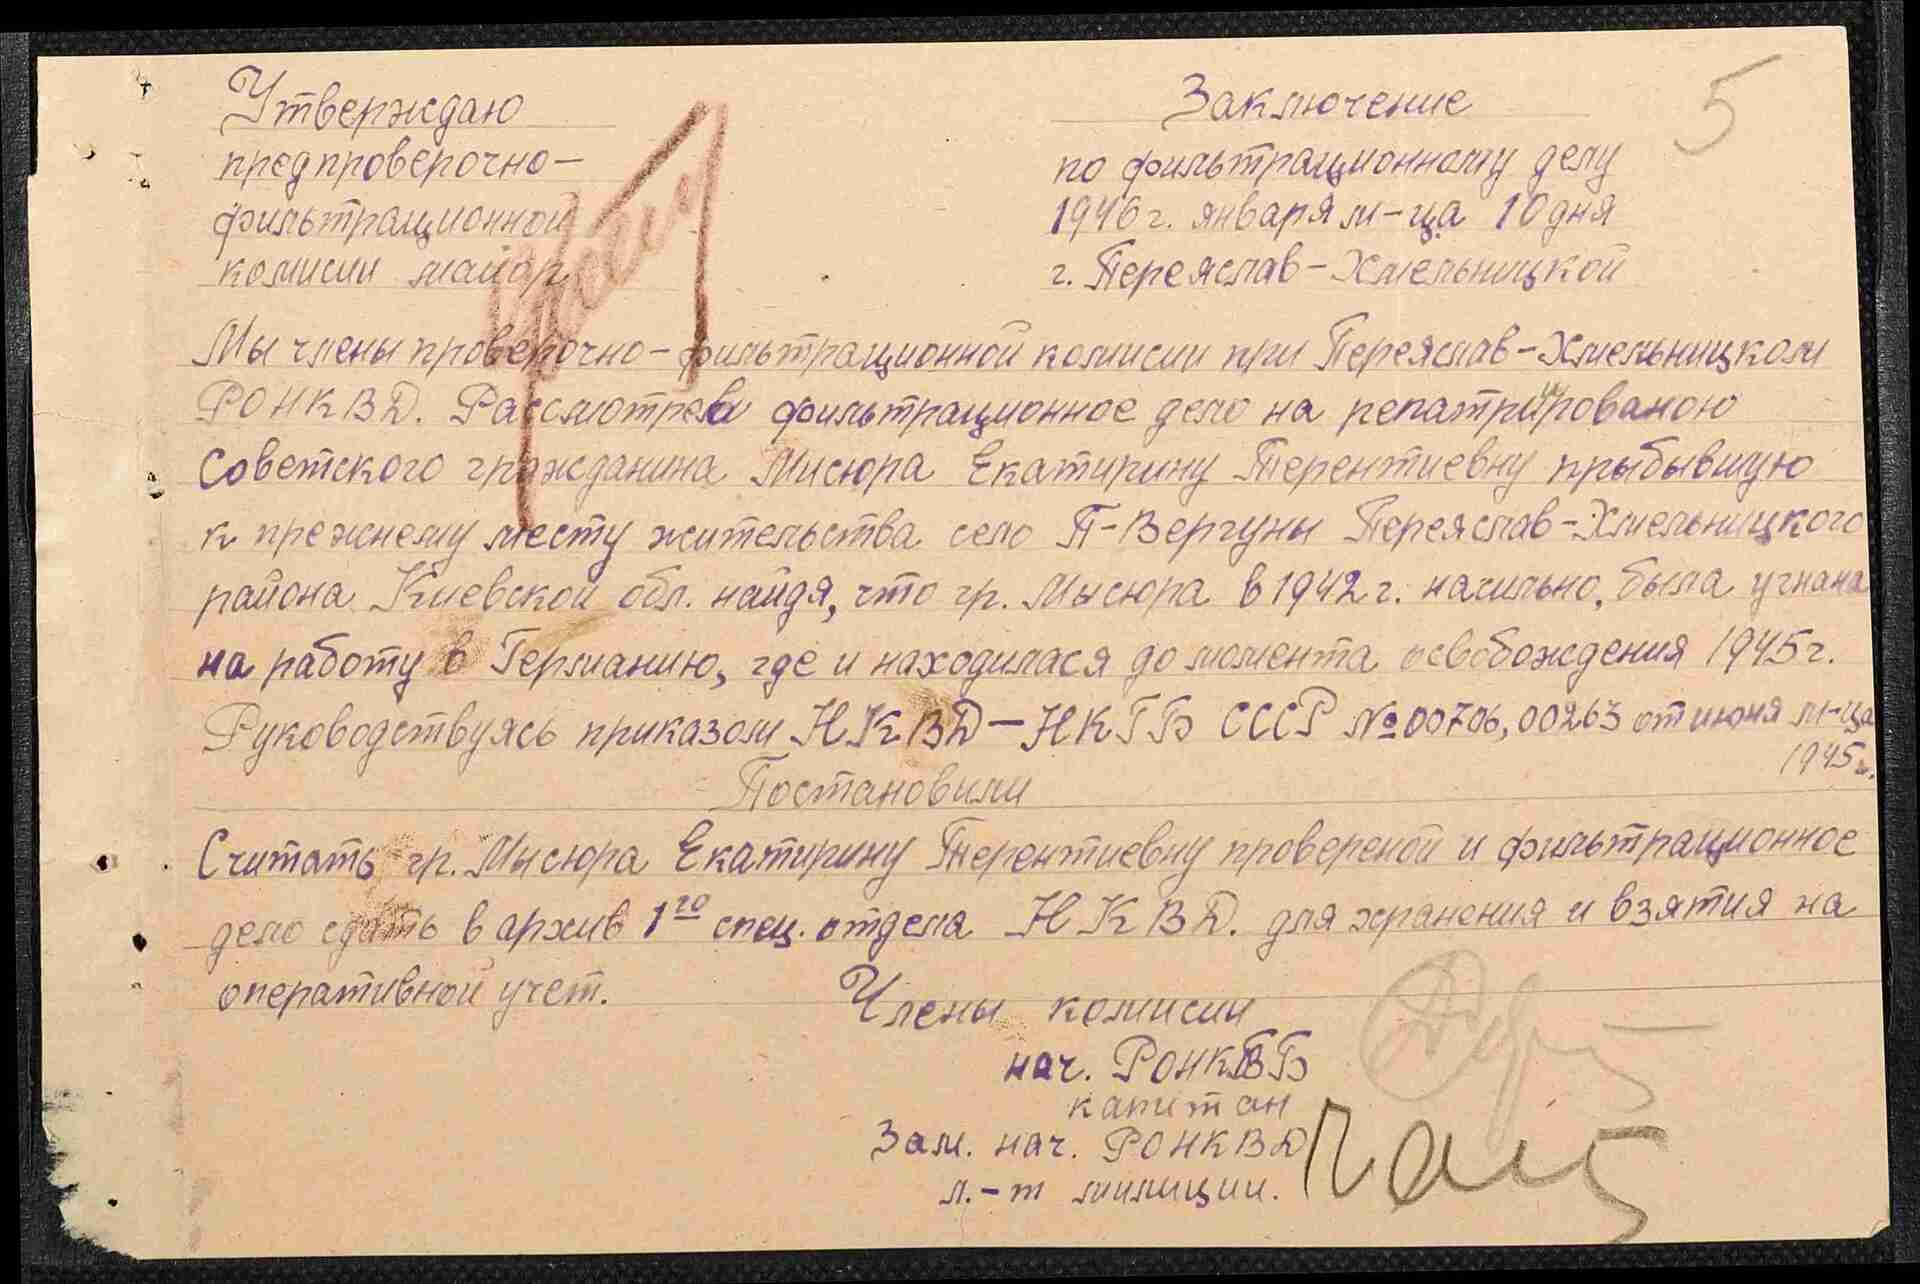 5
Утверждаю
предпроверочно-
фильтрационной
комисии майор
Заключение
по фильтрационному делу
1946 г. января м-ца 10 дня
г. Переяслав-Хмельницкой
Мы члены проверочно-фильтрационной комисии при Переяслав-Хмельницком
РОНКВД. Рассмотрев фильтрационное дело на репатриированою
Советского гражданина Мисюра Екатирину Терентиевну прыбывшую
к прежнему месту жительства село П-Вергуны Переяслав-Хмельницкого
района Киевской обл. найдя, что гр. Мысюра в 1942 г. насильно, была угнана
на работу в Германию, где и находилася до момента освобождения 1945 г.
Руководствуясь приказом НКВД-НКГБ СССР № 00706, 00263 от июня м-ца
1945 г.
Постановили
Считать гр. Мысюра Екатирину Терентиевну провереной и фильтрационное
дело сдать в архив 1го спец. отдела НКВД. для хранения и взятия на
оперативной учет.
Члены комисии
нач. РОНКГБ
капитан
Зам. нач. РОНКВД
л.-т милиции.